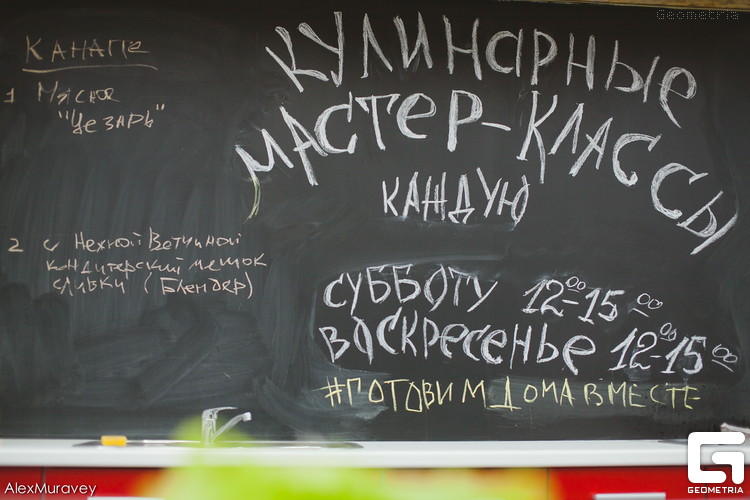 Geometria
КАНАПЕ
1 Мясное
"Цезарь"
2 с Нежной Ветчиной
кондитерский мешок
сливки (Блендер)
КУЛИНАРНЫЕ
МАСТЕР-КЛАССЫ
КАЖДУЮ
СУББОТУ 12:00-15:00
ВОСКРЕСЕНЬЕ 12:00-15:00
#ГОТОВИМДОМАВМЕСТЕ
AlexMuravey
GEOMETRIA